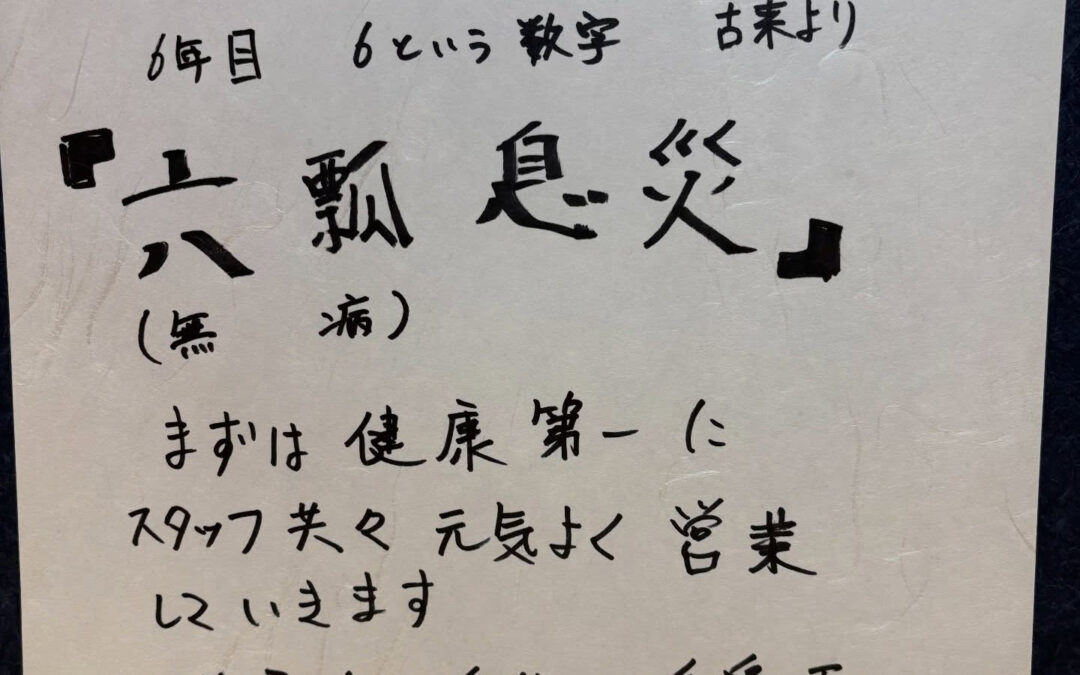 6年目 6という数字 古来より
『六瓢息災』
(無 病)
まずは健康第一に
スタッフ共々元気よく営業
していきます